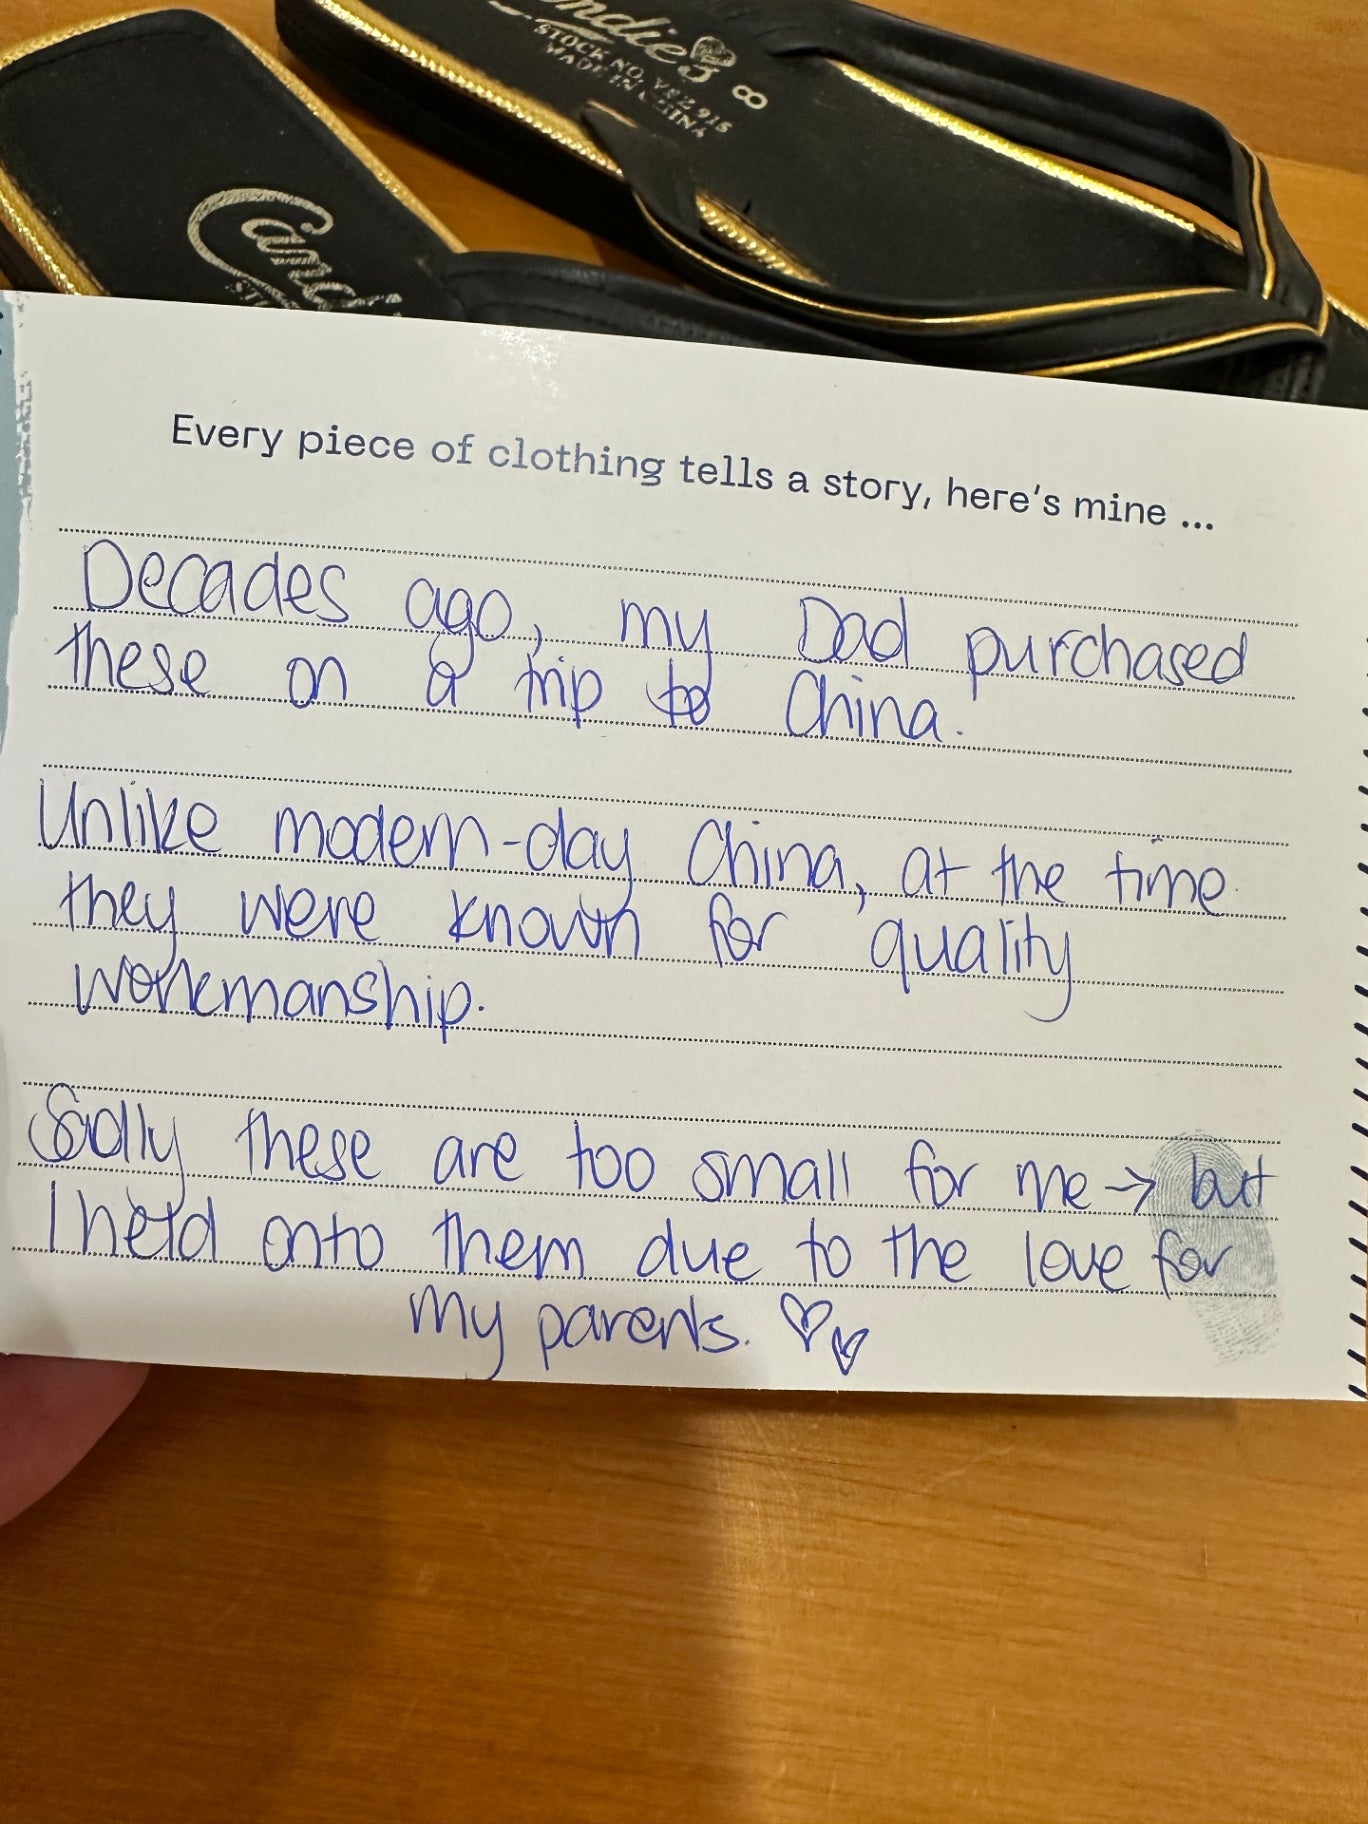 Candie's 8
STOCK NO. VEZ 915
MADE IN CHINA
Candie's
Every piece of clothing tells a story, here's mine ...
Decades ago, my Dad purchased
these on a trip to China.
Unlike modern-day China, at the time
they were known for quality
workmanship.
Sadly these are too small for me → but
I held onto them due to the love for
my parents. ♡♡